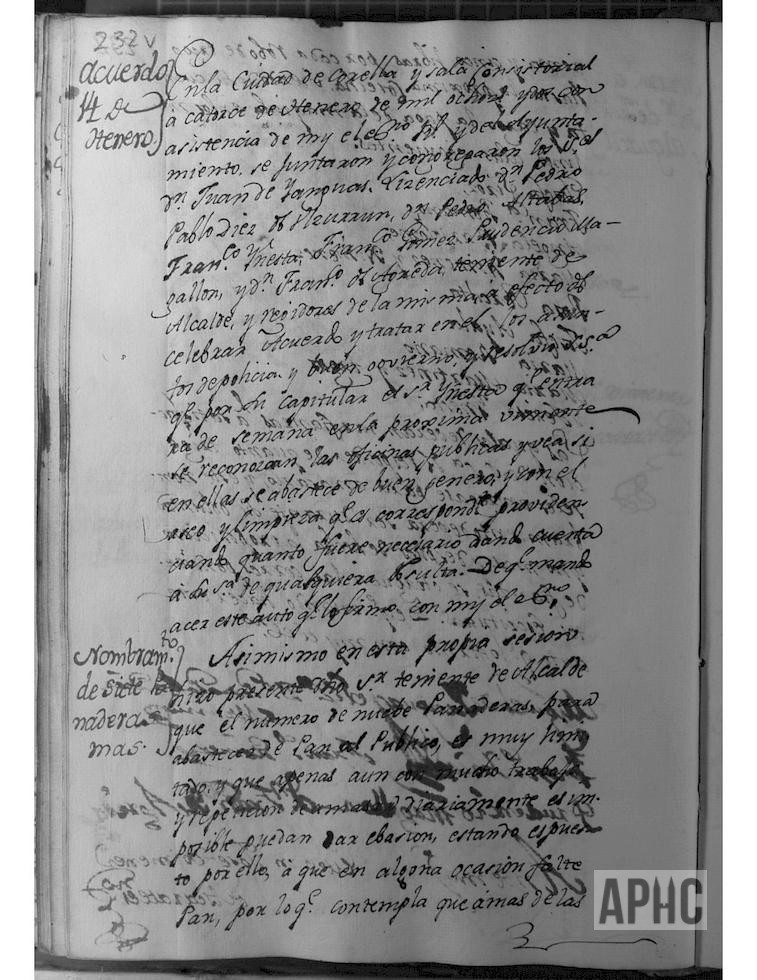 232 v
acuerdo
14 de
Henero
En la Ciudad de Corella y sala Consistorial
a catorce de Henero de mil ochoz.s y dos con
asistencia de my el es.no R.l y del Ayunta-
miento, se Juntaron y congregaron los S.res
d.n Juan de Yanguas, Lizenciado d.n Pedro
Pablo Diez de Ulzurrun, d.n Pedro Altabas,
Fran.co Yñesta, Fran.co Gomez Prudencio Ma-
gallon, y d.n Fran.co de Agreda, teniente de
Alcalde, y regidores de la misma, a efecto de
celebrar Acuerdo y tratar en el los asun-
tos de policia y buen govierno, y resolvio su S.a
q.e por su Capitular el S.r Yñesta q.e entra
ra de semana en la proxima viniente
se reconozcan las oficinas publicas y vea si
en ellas se abastece de buen genero, y con el
aseo y limpieza q.e es correspond.te providen-
ciando quanto fuere necesario dando cuenta
a su S.a de qualquiera resulta. De q.e mando
acer este auto q.e lo firmo con my el es.no
Nombram.to
de siete Pa
naderas
mas.
Asimismo en esta propia sesion
hizo presente dho S.r teniente de Alcalde
que el numero de nuebe Panaderas, para
abastecer de Pan al Publico, es muy limi
tado, y que apenas aun con mucho trabajo
y repeticion de amasar diariamente es im-
posible puedan dar ebasion, estando espues-
to por ello, a que en algona ocasion falte
Pan, por lo q.e contempla que a mas de las
APHC